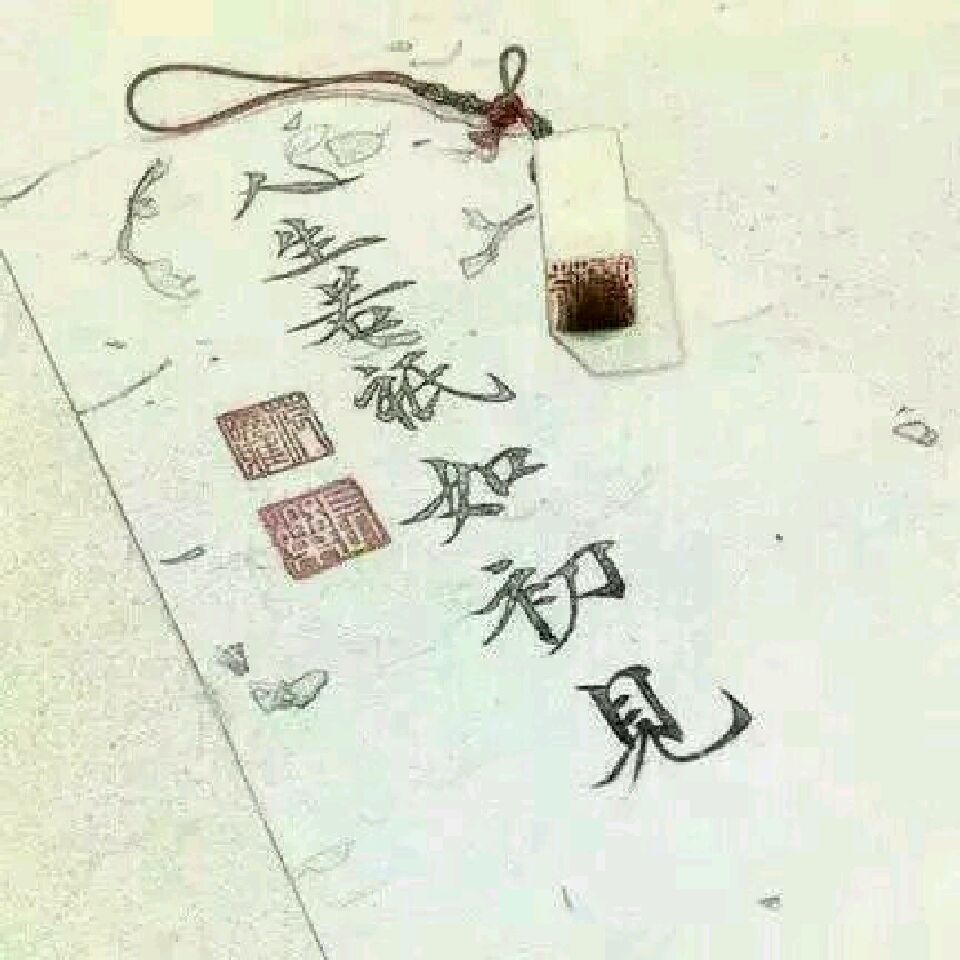 人生若衹如初見